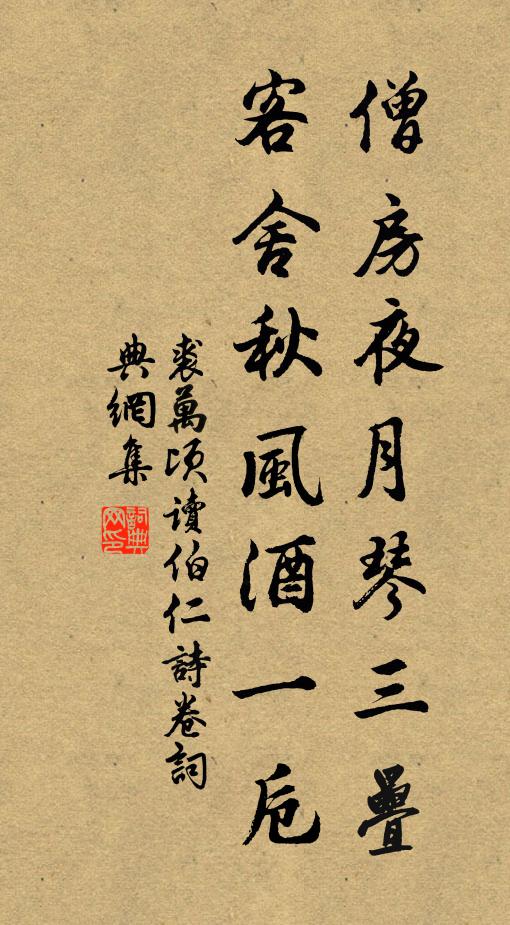 僧房夜月琴三疊
客舍秋風酒一卮
裘萬頃讀伯仁詩卷詞
典網集
詞典網印